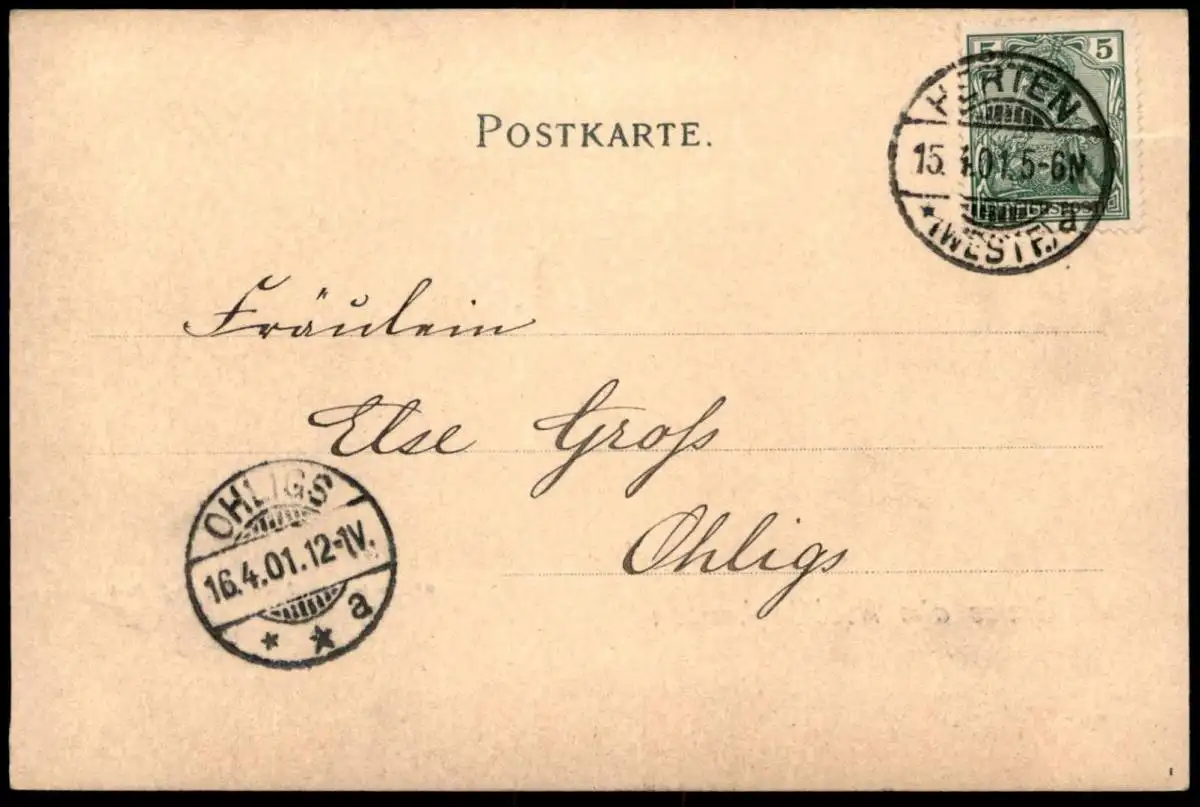 5 5
HERTEN
15.4.01.5-6N
* (WESTF.) a
POSTKARTE.
Fräulein
Else Groß
Ohligs
OHLIGS
16.4.01.12-1V.
* * a